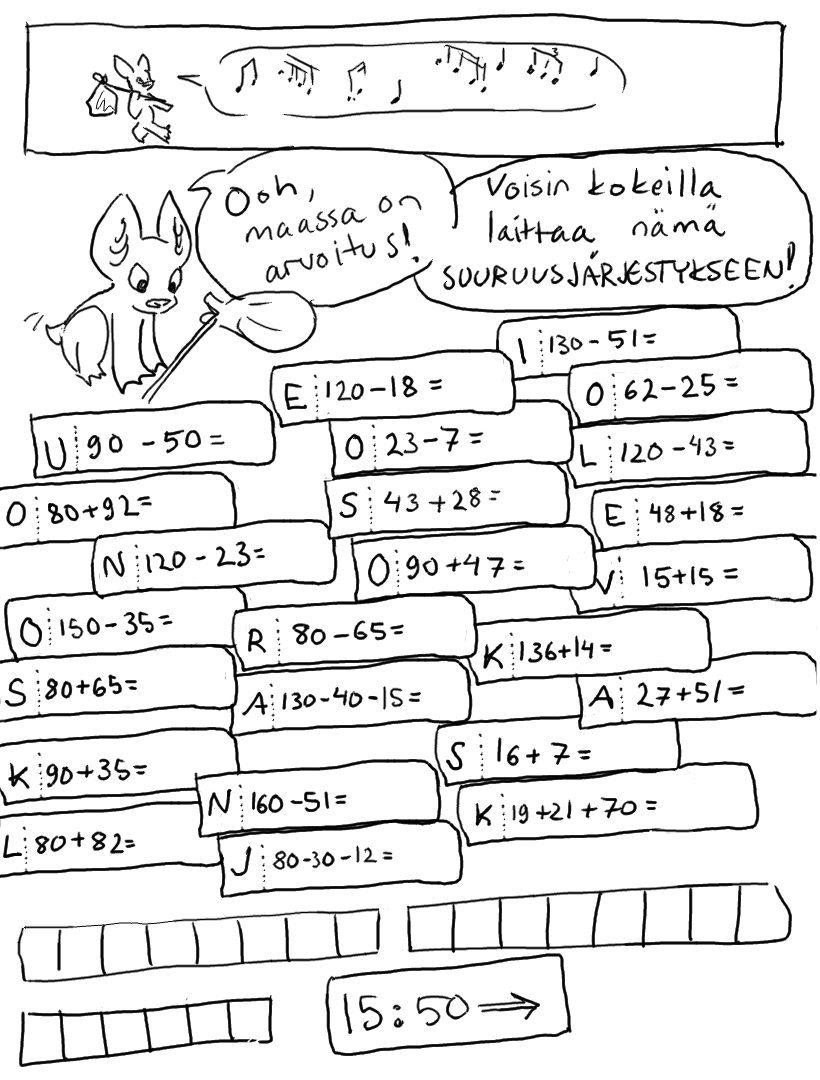 Ooh,
maassa on
arvoitus!
Voisin kokeilla
laittaa nämä
SUURUUSJÄRJESTYKSEEN!
I 130-51=
E 120-18=
O 62-25=
U 90-50=
O 23-7=
L 120-43=
O 80+92=
S 43+28=
E 48+18=
N 120-23=
O 90+47=
V 15+15=
O 150-35=
R 80-65=
K 136+14=
S 80+65=
A 130-40-15=
A 27+51=
K 90+35=
S 16+7=
N 160-51=
K 19+21+70=
L 80+82=
J 80-30-12=
15:50⇒